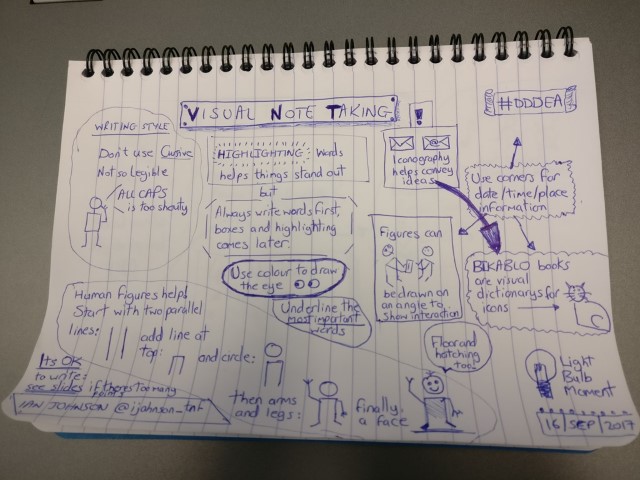 VISUAL NOTE TAKING
!
#DDDEA
WRITING STYLE
Don't use Cursive
Not so legible
ALL CAPS
is too shouty
HIGHLIGHTING Words
helps things stand out
but
Always write words first,
boxes and highlighting
comes later.
Use colour to draw
the eye
Underline the
most important
words
Iconography
helps convey
ideas
Figures can
be drawn on
an angle to
show interaction
Use corners for
date/time/place
information
BIKABLO books
are visual
dictionarys for
icons
Human figures help!
Start with two parallel
lines:
add line at
top:
and circle:
then arms
and legs:
finally,
a face
Floor and
hatching
too!
Its OK
to write:
see slides if theres too many
points
IAN JOHNSON @ijohnson_tnf
Light
Bulb
Moment
16/SEP/2017